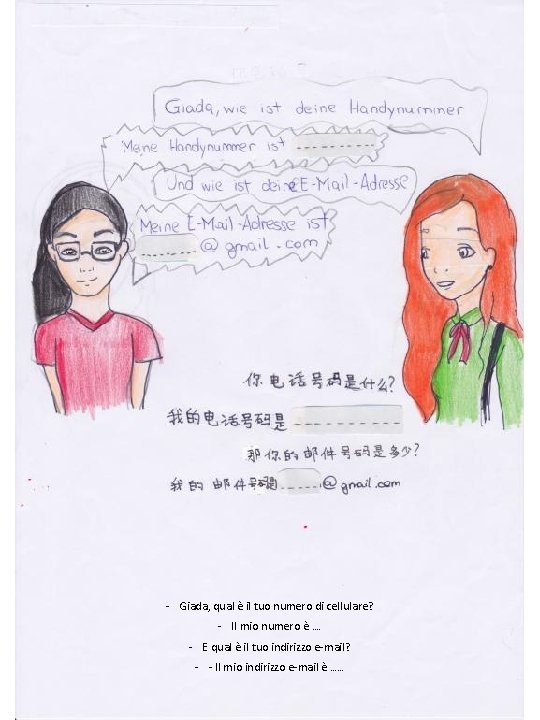 Giada, wie ist deine Handynummer
Meine Handynummer ist _ _ _ _ _ _ _ _ _
Und wie ist deine E-Mail-Adresse
Meine E-Mail-Adresse ist
_ _ _ _ @ gmail.com
你电话号码是什么?
我的电话号码是 _ _ _ _ _ _ _ _ _ _
那你的邮件号码是多少?
我的邮件号码是 _ _ _ _ @ gmail.com
- Giada, qual è il tuo numero di cellulare?
- Il mio numero è ....
- E qual è il tuo indirizzo e-mail?
- - Il mio indirizzo e-mail è ......